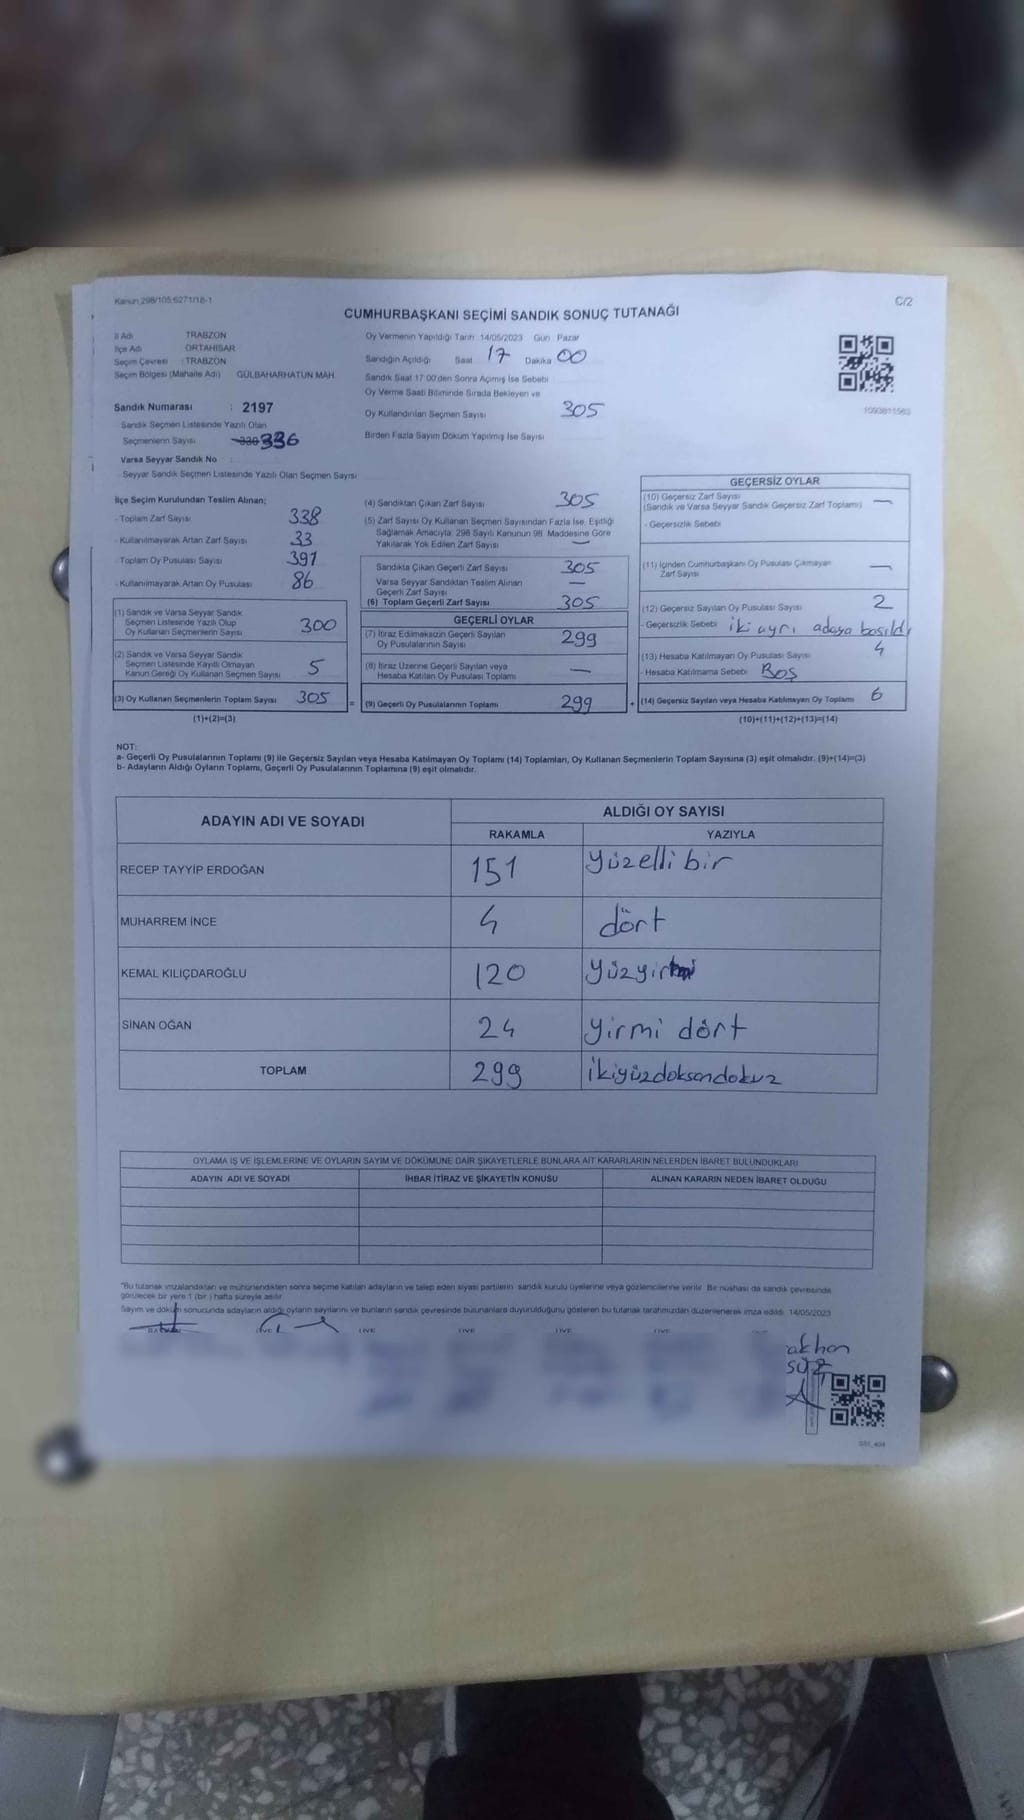 Kanun 298/105;6271/18-1
C/2
CUMHURBAŞKANI SEÇİMİ SANDIK SONUÇ TUTANAĞI
İl Adı TRABZON
İlçe Adı ORTAHİSAR
Seçim Çevresi : TRABZON
Seçim Bölgesi (Mahalle Adı) GÜLBAHARHATUN MAH.
Sandık Numarası : 2197
- Sandık Seçmen Listesinde Yazılı Olan
Seçmenlerin Sayısı 336
Varsa Seyyar Sandık No
- Seyyar Sandık Seçmen Listesinde Yazılı Olan Seçmen Sayısı
Oy Vermenin Yapıldığı Tarih 14/05/2023 Gün Pazar
Sandığın Açıldığı Saat 17 Dakika 00
Sandık Saat 17:00'den Sonra Açımış İse Sebebi
Oy Verme Saati Bitiminde Sırada Bekleyen ve
Oy Kullandırılan Seçmen Sayısı 305
Birden Fazla Sayım Döküm Yapılmış İse Sayısı
1093811563
İlçe Seçim Kurulundan Teslim Alınan;
- Toplam Zarf Sayısı 338
- Kullanılmayarak Artan Zarf Sayısı 33
- Toplam Oy Pusulası Sayısı 391
- Kullanılmayarak Artan Oy Pusulası 86
(1) Sandık ve Varsa Seyyar Sandık
Seçmen Listesinde Yazılı Olup
Oy Kullanan Seçmenlerin Sayısı 300
(2) Sandık ve Varsa Seyyar Sandık
Seçmen Listesinde Kayıtlı Olmayan
Kanun Gereği Oy Kullanan Seçmen Sayısı 5
(3) Oy Kullanan Seçmenlerin Toplam Sayısı 305 =
(1)+(2)=(3)
(4) Sandıktan Çıkan Zarf Sayısı 305
(5) Zarf Sayısı Oy Kullanan Seçmen Sayısından Fazla İse, Eşitliği
Sağlamak Amacıyla, 298 Sayılı Kanunun 98. Maddesine Göre
Yakılarak Yok Edilen Zarf Sayısı —
Sandıkta Çıkan Geçerli Zarf Sayısı 305
Varsa Seyyar Sandıktan Teslim Alınan
Geçerli Zarf Sayısı —
(6) Toplam Geçerli Zarf Sayısı 305
GEÇERLİ OYLAR
(7) İtiraz Edilmeksizin Geçerli Sayılan
Oy Pusulalarının Sayısı 299
(8) İtiraz Üzerine Geçerli Sayılan veya
Hesaba Katılan Oy Pusulası Toplamı —
(9) Geçerli Oy Pusulalarının Toplamı 299 +
GEÇERSİZ OYLAR
(10) Geçersiz Zarf Sayısı —
(Sandık ve Varsa Seyyar Sandık Geçersiz Zarf Toplamı)
- Geçersizlik Sebebi
(11) İçinden Cumhurbaşkanı Oy Pusulası Çıkmayan
Zarf Sayısı —
(12) Geçersiz Sayılan Oy Pusulası Sayısı 2
- Geçersizlik Sebebi iki ayrı adaya basıldı
(13) Hesaba Katılmayan Oy Pusulası Sayısı 4
- Hesaba Katılmama Sebebi Boş
(14) Geçersiz Sayılan veya Hesaba Katılmayan Oy Toplamı 6
(10)+(11)+(12)+(13)=(14)
NOT:
a- Geçerli Oy Pusulalarının Toplamı (9) ile Geçersiz Sayılan veya Hesaba Katılmayan Oy Toplamı (14) Toplamları, Oy Kullanan Seçmenlerin Toplam Sayısına (3) eşit olmalıdır. (9)+(14)=(3)
b- Adayların Aldığı Oyların Toplamı, Geçerli Oy Pusulalarının Toplamına (9) eşit olmalıdır.
ADAYIN ADI VE SOYADI
ALDIĞI OY SAYISI
RAKAMLA YAZIYLA
RECEP TAYYİP ERDOĞAN 151 Yüzelli bir
MUHARREM İNCE 4 dört
KEMAL KILIÇDAROĞLU 120 Yüzyirmi
SİNAN OĞAN 24 yirmi dört
TOPLAM 299 ikiyüzdoksandokuz
OYLAMA İŞ VE İŞLEMLERİNE VE OYLARIN SAYIM VE DÖKÜMÜNE DAİR ŞİKAYETLERLE BUNLARA AİT KARARLARIN NELERDEN İBARET BULUNDUKLARI
ADAYIN ADI VE SOYADI İHBAR İTİRAZ VE ŞİKAYETİN KONUSU ALINAN KARARIN NEDEN İBARET OLDUĞU
*Bu tutanak imzalandıktan ve mühürlendikten sonra seçime katılan adayların ve talep eden siyasi partilerin sandık kurulu üyelerine veya gözlemcilerine verilir. Bir nushası da sandık çevresinde
görülecek bir yere 1 (bir ) hafta süreyle asılır.
Sayım ve döküm sonucunda adayların aldığı oyların sayılarını ve bunların sandık çevresinde bulunanlara duyurulduğunu gösteren bu tutanak tarafımızdan düzenlenerek imza edildi. 14/05/2023